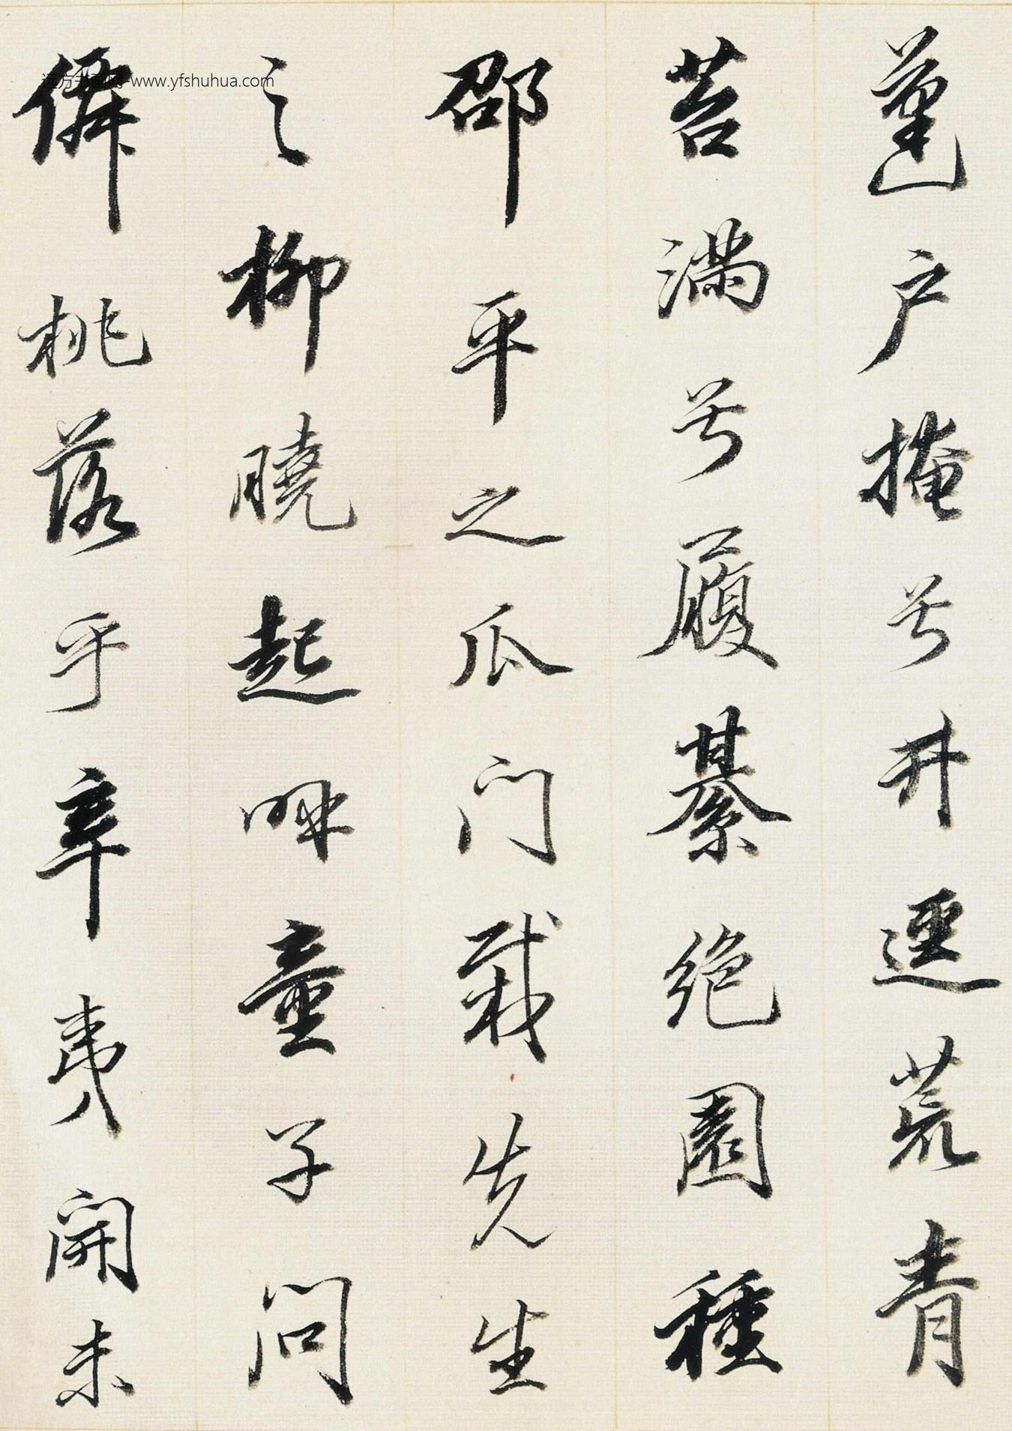 蓬户掩兮井迳荒青
苔满兮履綦绝园種
邵平之瓜门栽先生
之柳晓起呼童子问
僻桃落乎辛夷開未
www.yfshuhua.com